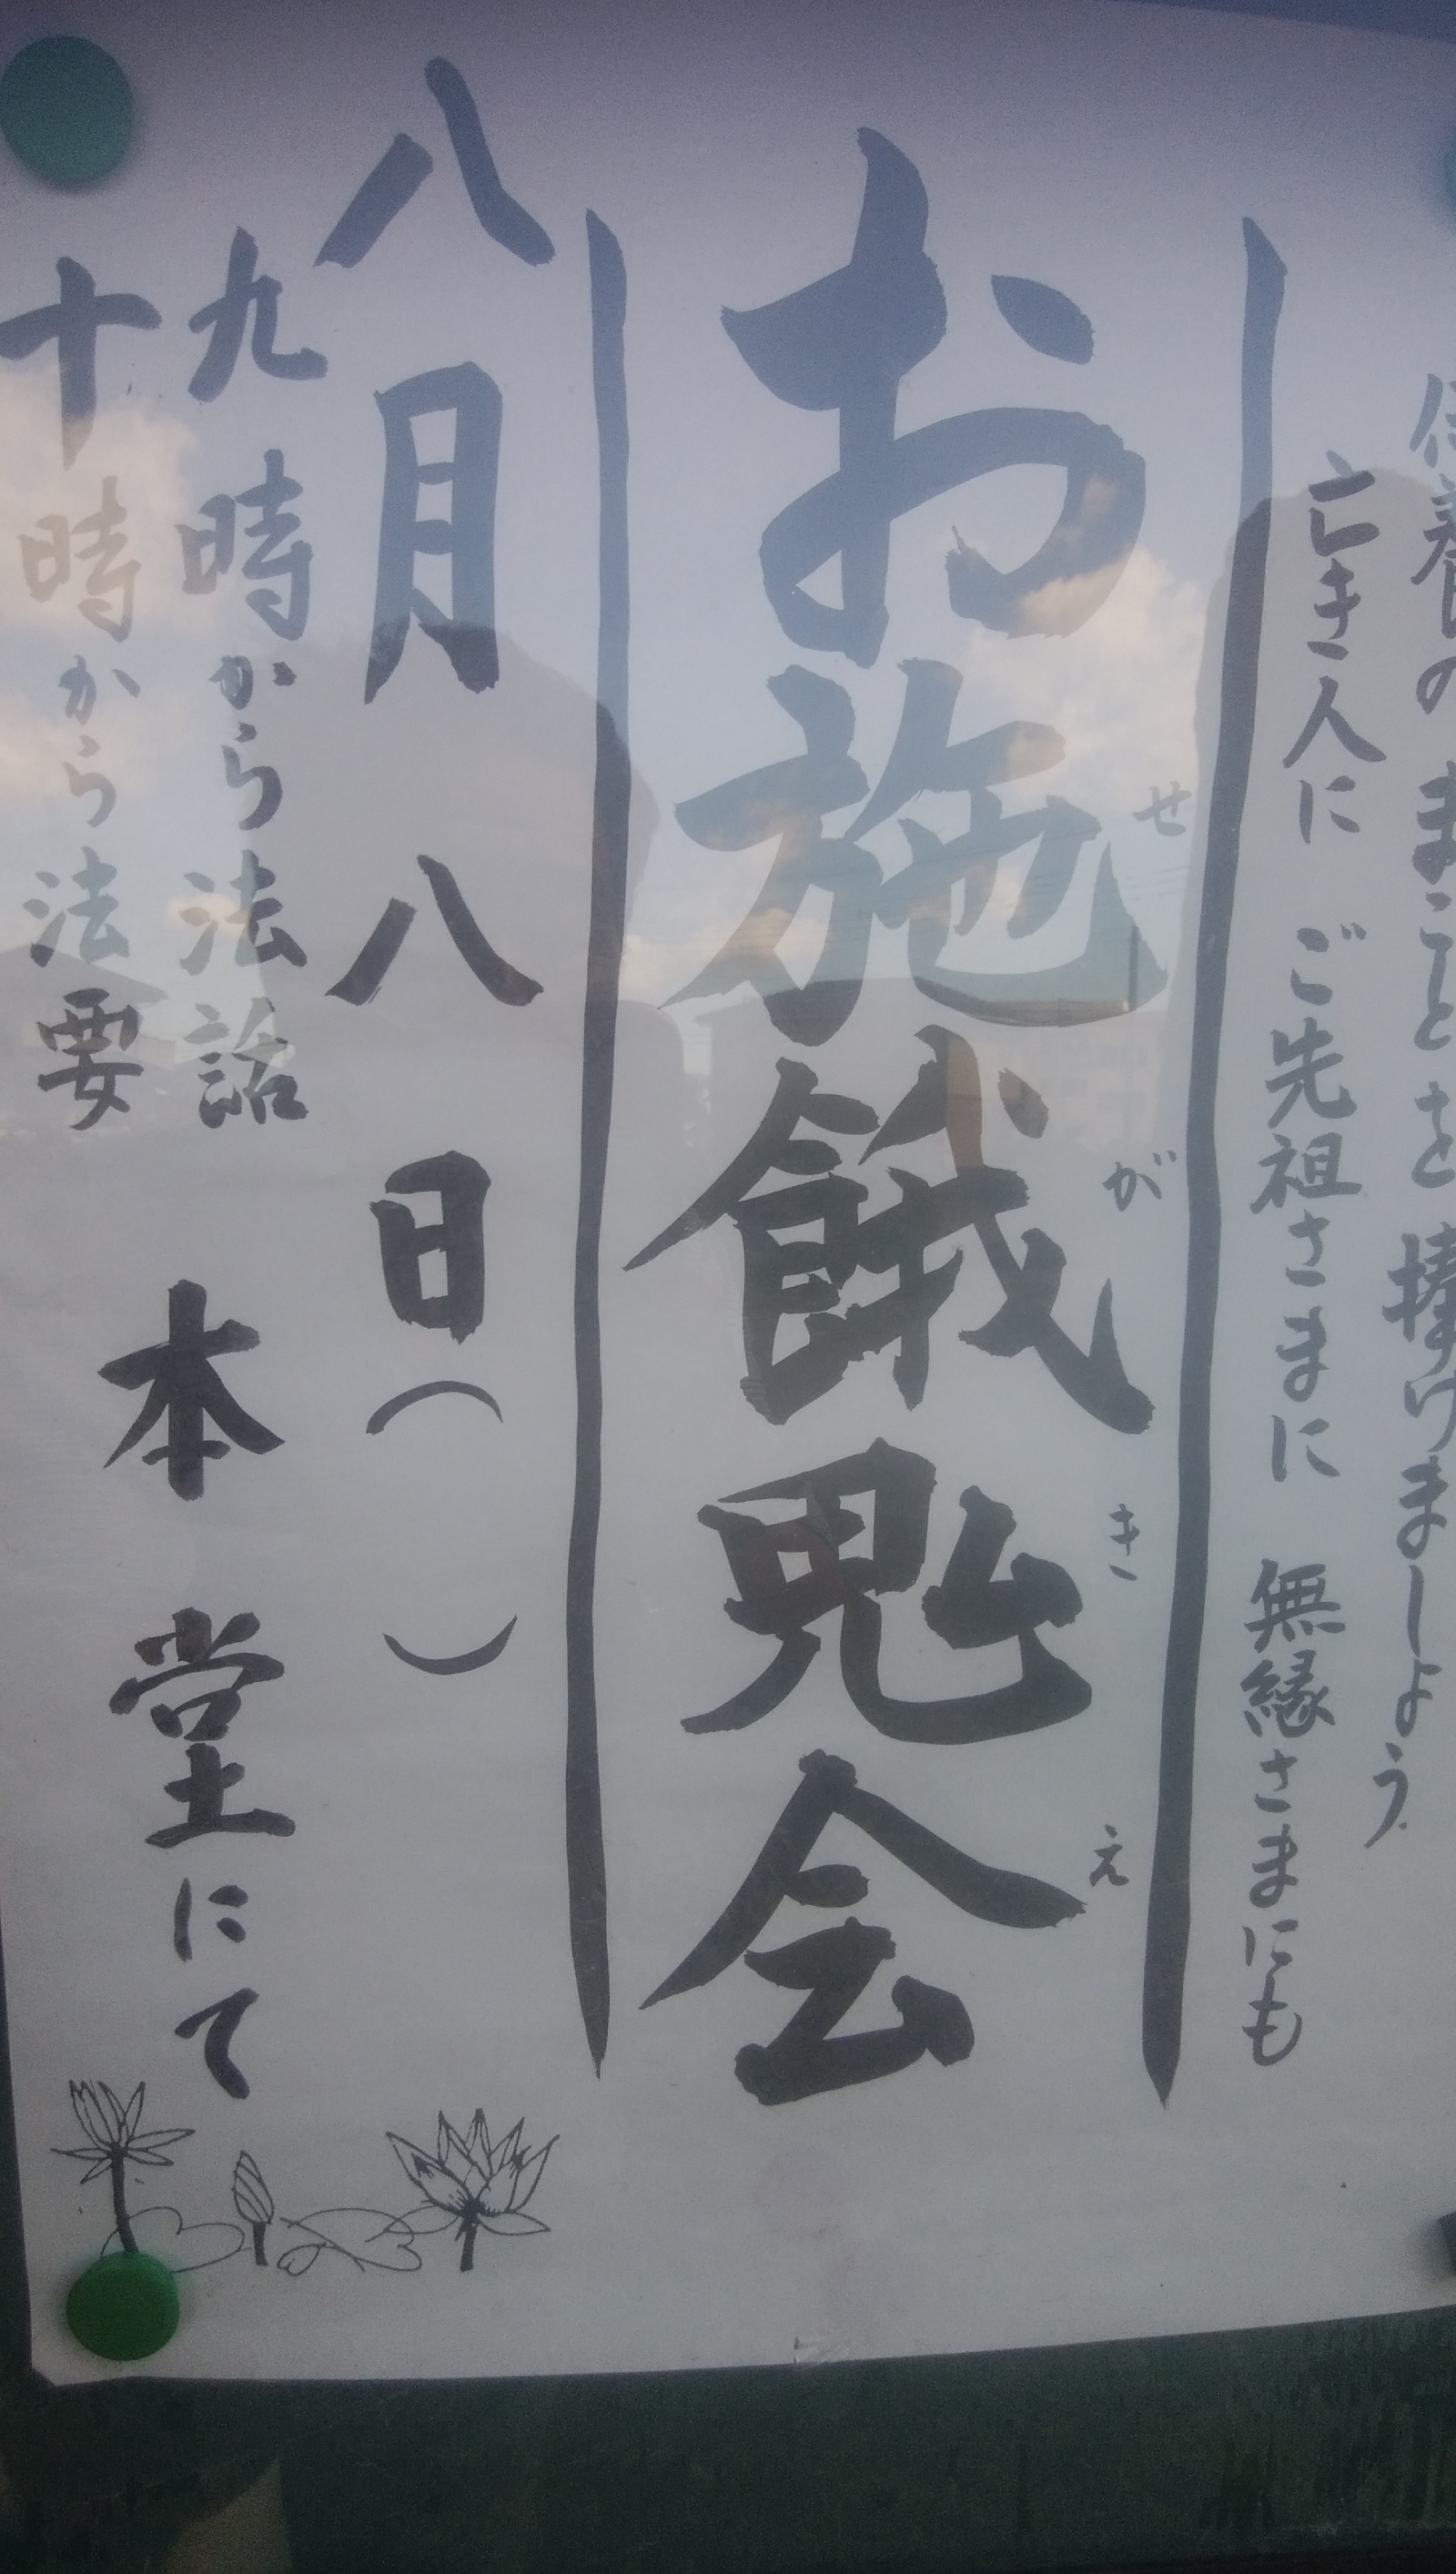 供養の まことを 捧げましょう
亡き人に ご先祖さまに 無縁さまにも
せ が き え
お施餓鬼会
八月八日( )
九時から法話
十時から法要
本堂にて